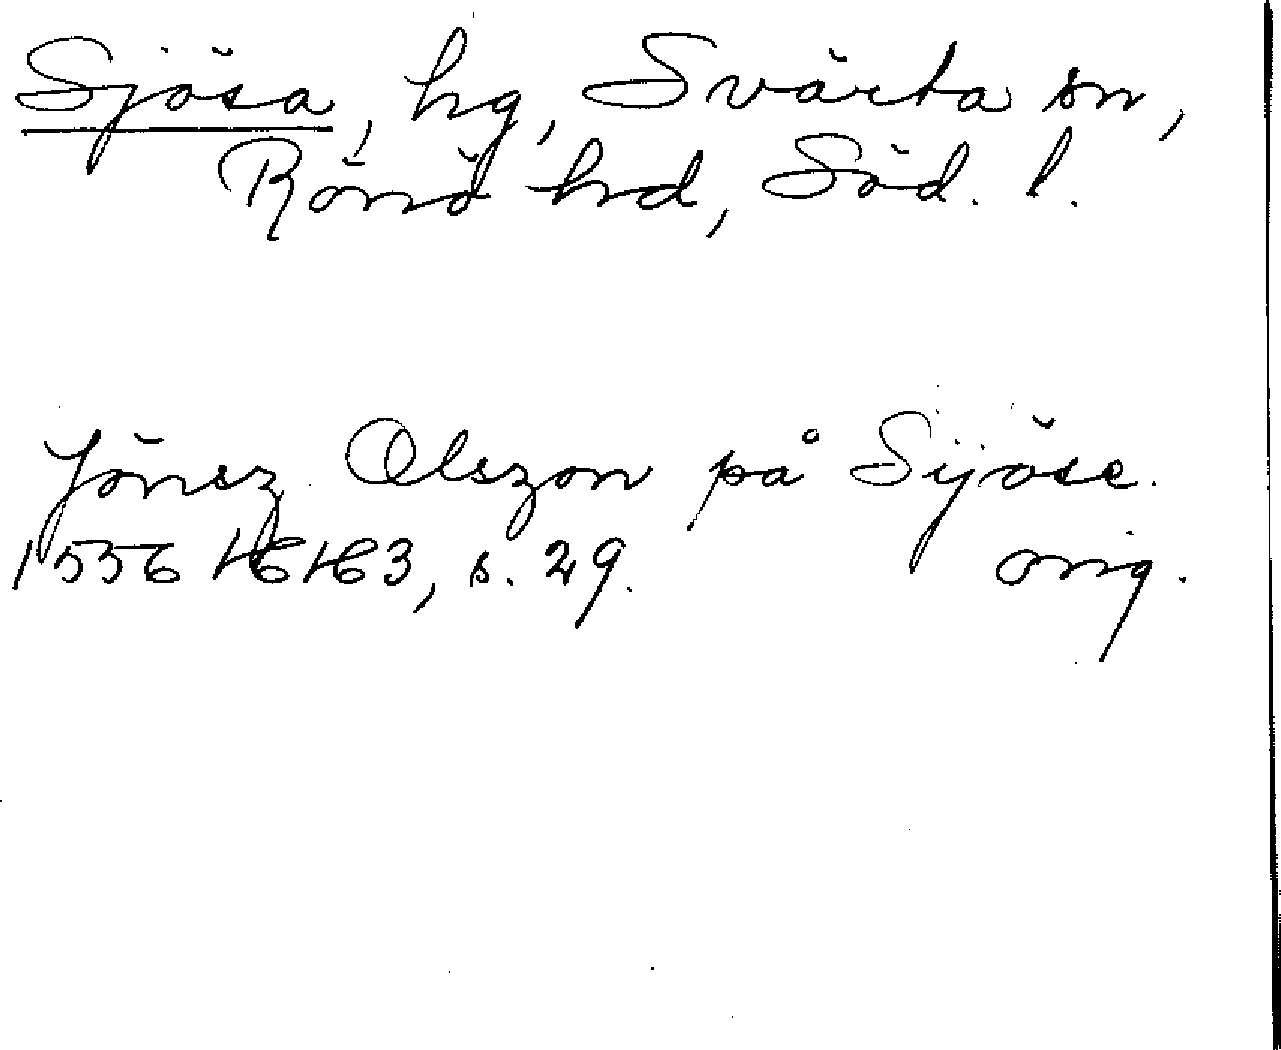 Sjösa, hg, Svärta sn,
Rönö hd, Söd. l.
Jönsz Olszon på Sijöse.
1556 HH3, s. 29. orig.